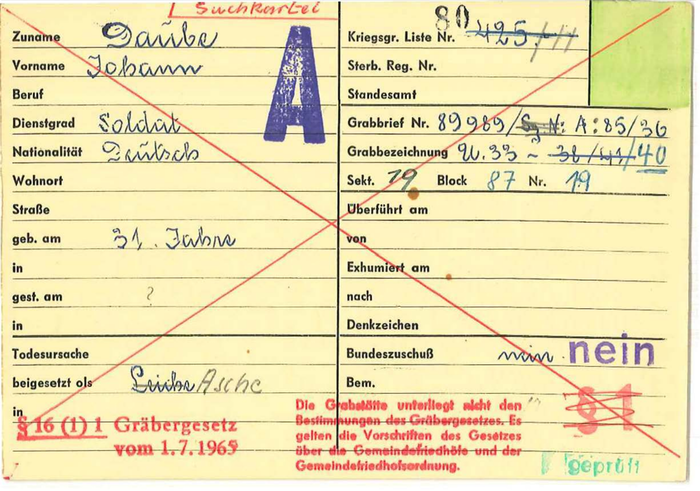 Suchkartei
Zuname Daube
Vorname Johann
Beruf
Dienstgrad Soldat
Nationalität Deutsch
Wohnort
Straße
geb. am 31. Jahre
in
gest. am ?
in
Todesursache
beigesetzt als Leiche Asche
in
§ 16 (1) 1 Gräbergesetz
vom 1.7.1965
A
80
Kriegsgr. Liste Nr. 425/II
Sterb. Reg. Nr.
Standesamt
Grabbrief Nr. 89989/ N: A: 85/36
Grabbezeichnung 33 ~ 38/41/40
Sekt. 19 Block 87 Nr. 19
Überführt am
von
Exhumiert am
nach
Denkzeichen
Bundeszuschuß nein nein
Bem.
Die Grabstätte unterliegt nicht den
Bestimmungen des Gräbergesetzes. Es
gelten die Vorschriften des Gesetzes
über die Gemeindefriedhöfe und der
Gemeindefriedhofsordnung.
§ 1
geprüft